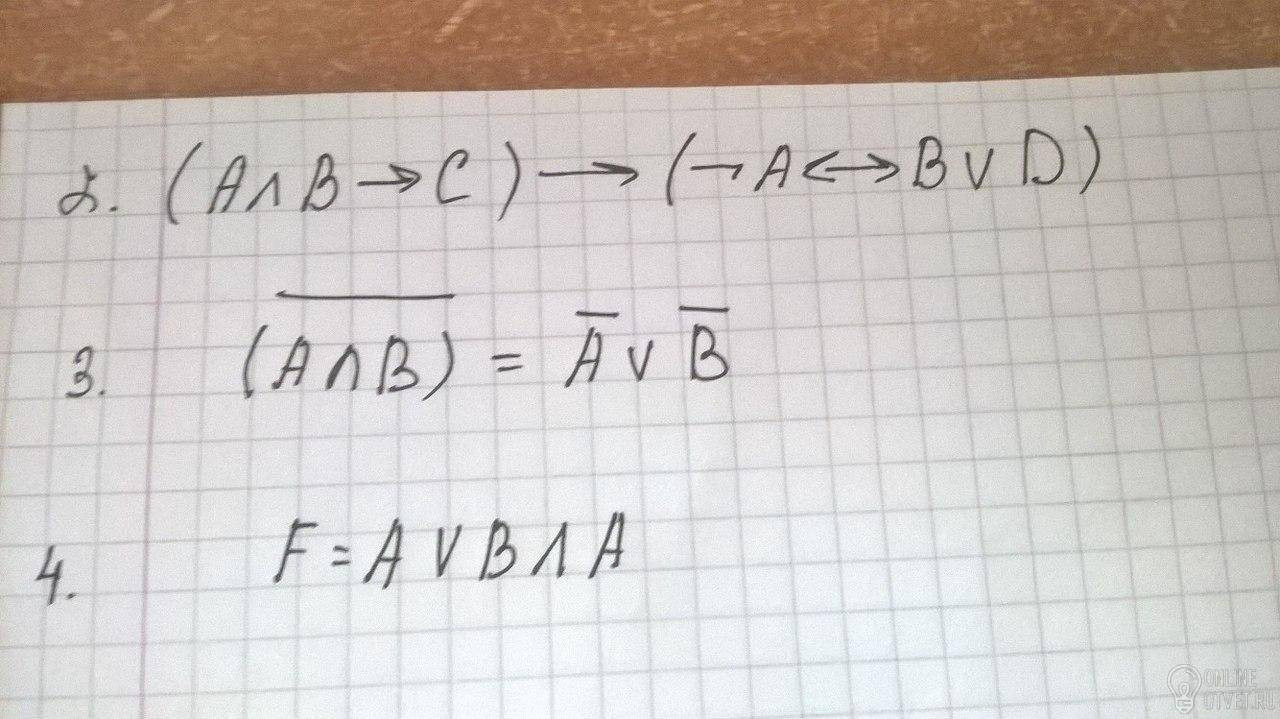 2. (A∧B→C)→(¬A↔B∨D)
3. (A∧B)̅ = A̅ ∨ B̅
4. F = A ∨ B ∧ A
ONLINE
OTVET.RU